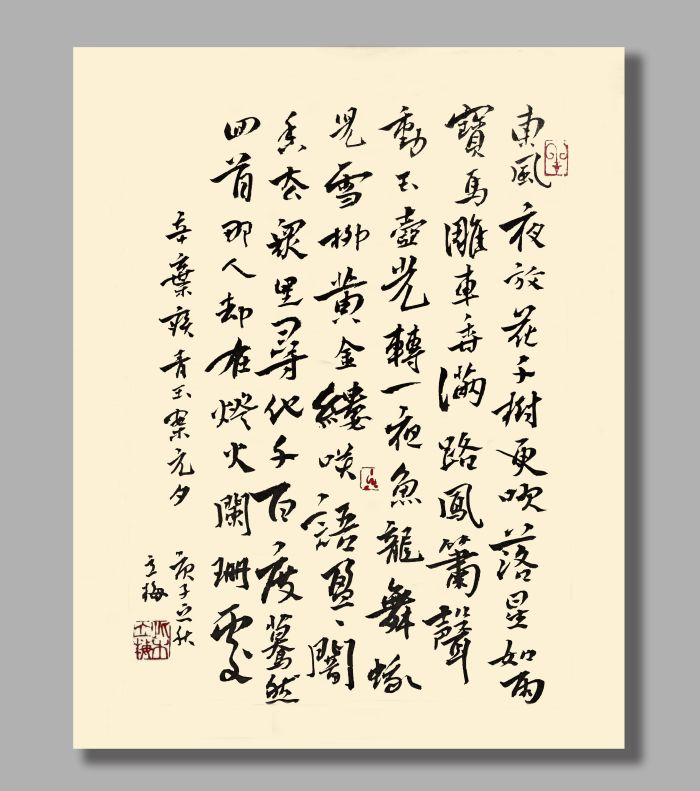 東風夜放花千樹更吹落星如雨
寶馬雕車香滿路鳳簫聲
動玉壺光轉一夜魚龍舞蛾
兒雪柳黃金縷咲語盈〻闇
香去眾里尋他千百度驀然
回首那人却在燈火闌珊處
辛棄疾青玉案元夕
庚子立秋
立梅